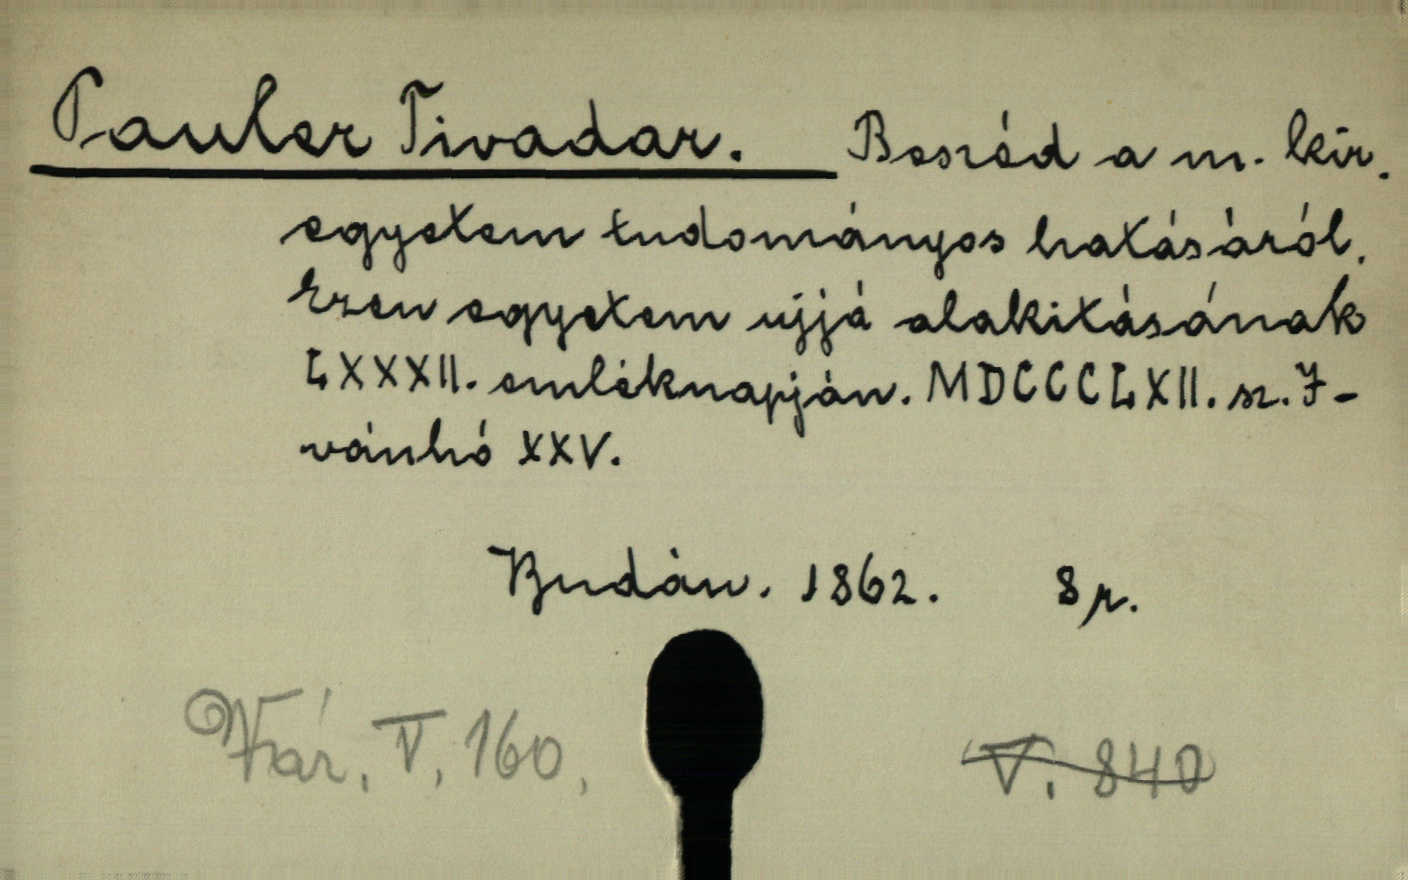 Pauler Tivadar. Beszéd a m. kir.
egyetem tudományos hatásáról.
Ezen egyetem ujjá alakitásának
LXXXII. emléknapján. MDCCCLXII. sz. I-
vánhó XXV.
Budán. 1862. 8 r.
Vár. V. 160.
V. 840